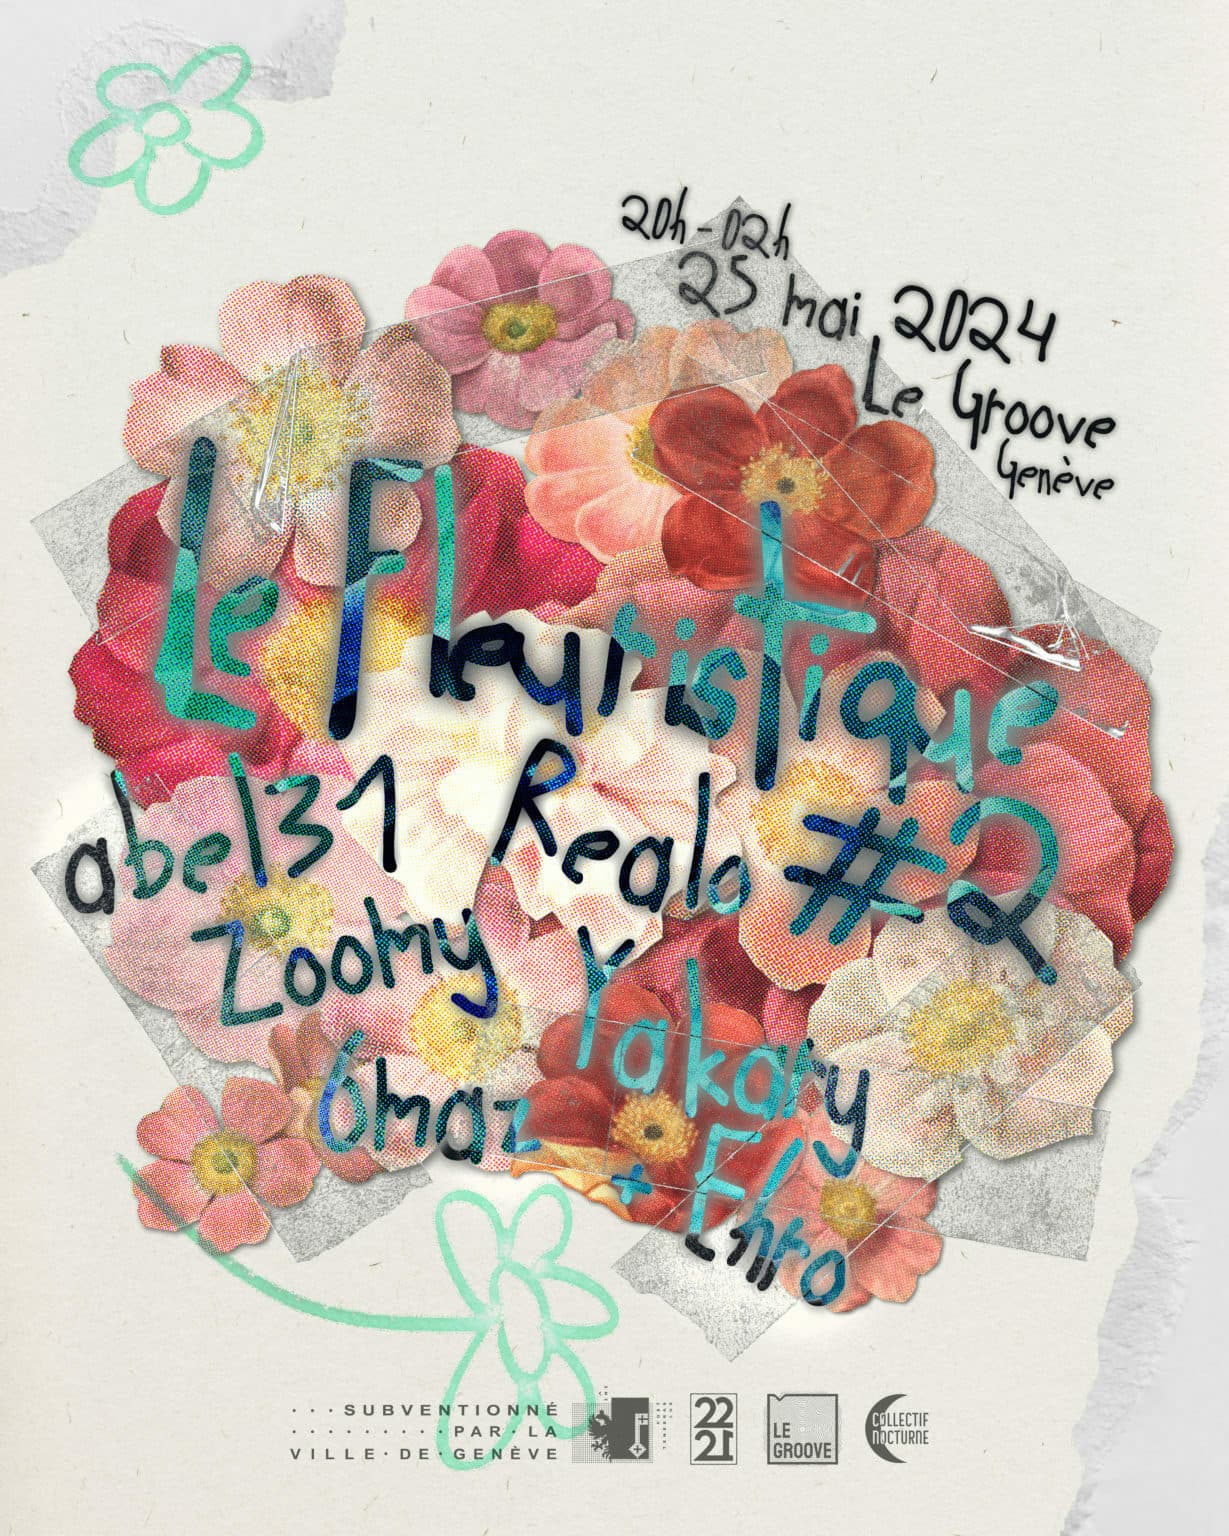 20h-02h
25 mai 2024
Le Groove
Genève
Le Fleuristique
#2
abel31 Realo
Zoomy Yakary
6maz + Ehro
···SUBVENTIONNÉ
·········PAR·LA
VILLE·DE·GENÈVE
22
21
LE
GROOVE
COLLECTIF
NOCTURNE